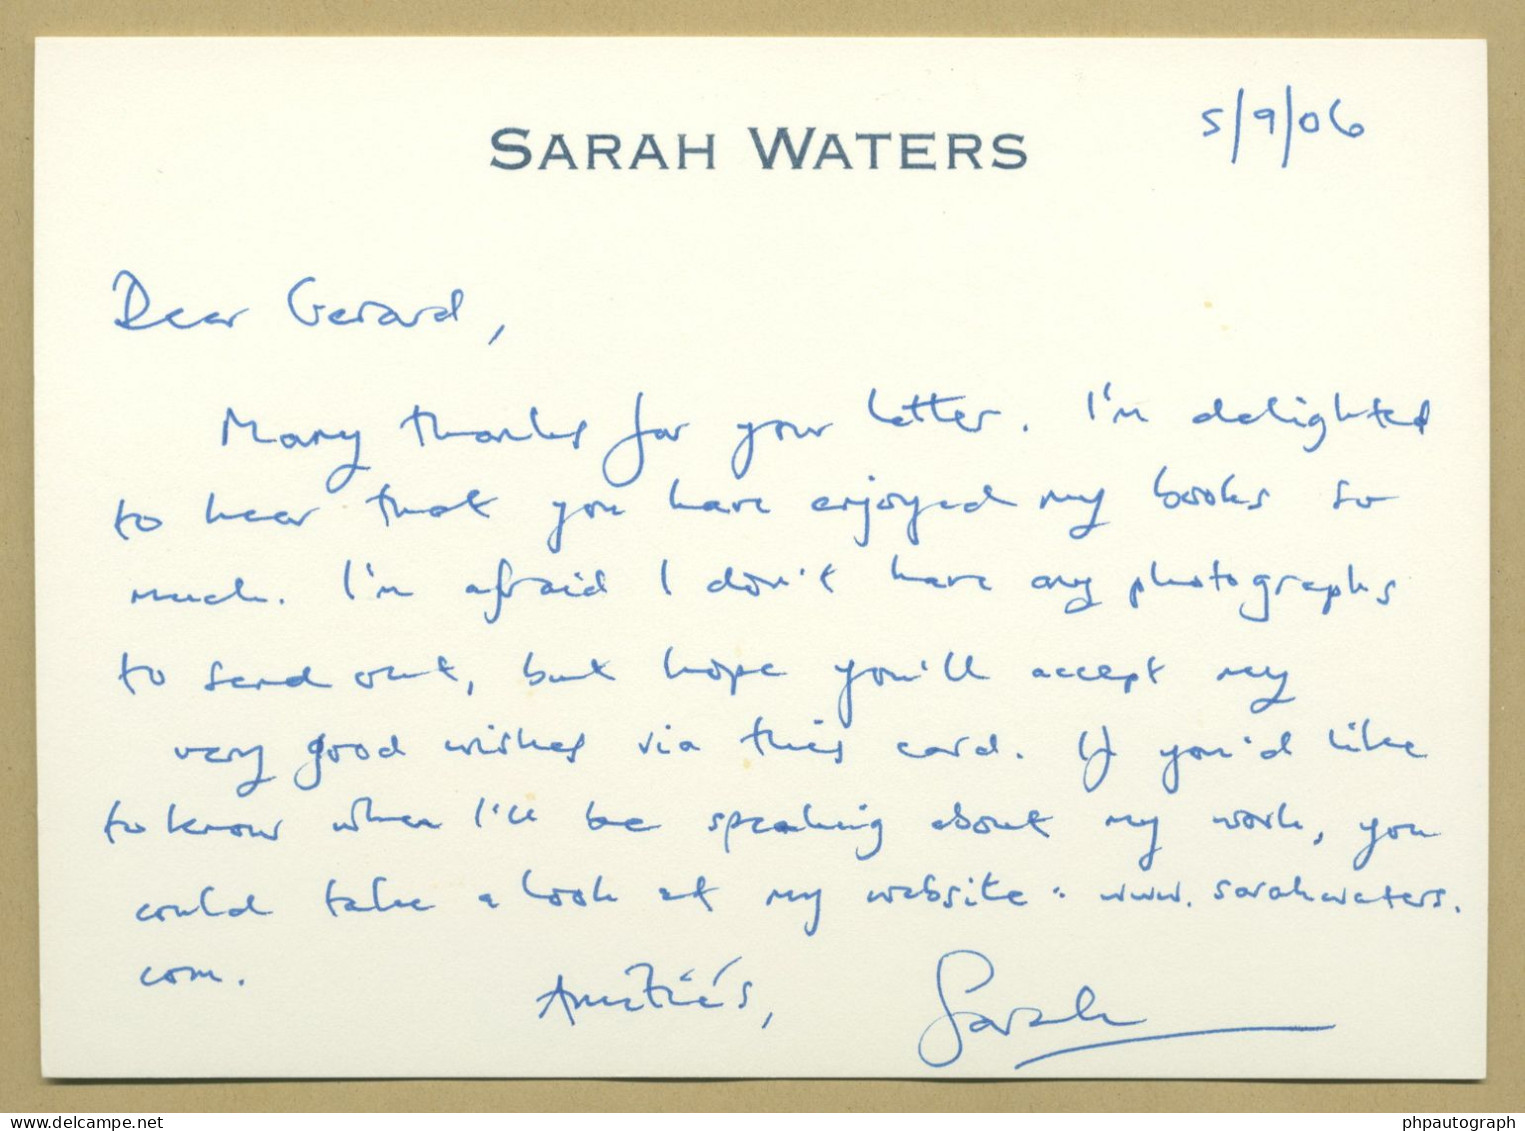 SARAH WATERS
5/9/06
Dear Gerard,
Many thanks for your letter. I'm delighted
to hear that you have enjoyed my books so
much. I'm afraid I don't have any photographs
to send out, but hope you'll accept my
very good wishes via this card. If you'd like
to know when I'll be speaking about my work, you
could take a look at my website: www.sarahwaters.
com.
Amitiés,
Sarah
www.delcampe.net
phpautograph